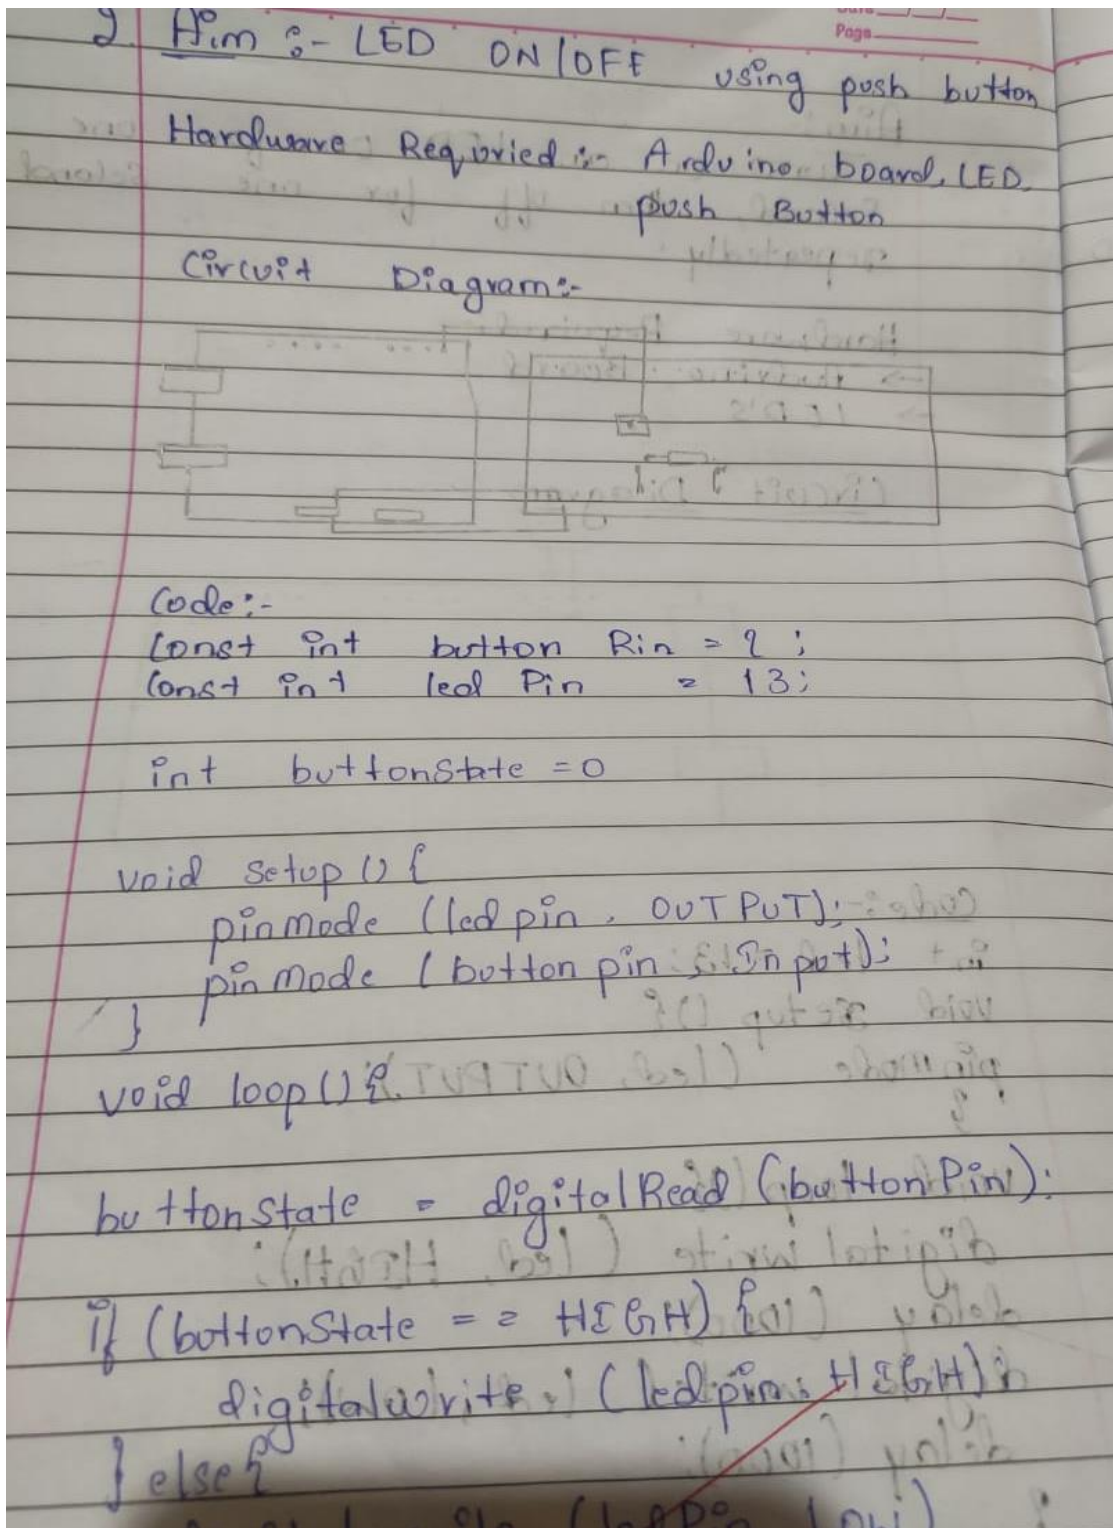 2. Aim :- LED ON/OFF using push button
Page
Hardware Requried :- Arduino board, LED,
push Button
Circuit Diagram :-
Code :-
Const int button Rin = 2 ;
Const int led Pin = 13;
int buttonState = 0
void setup () {
pinmode (led pin , OUTPUT);
pinmode (button pin , Input);
}
void loop () {
buttonState = digitalRead (buttonPin);
if (buttonState = = HIGH) {
digitalwrite (ledpin, HIGH);
} else {